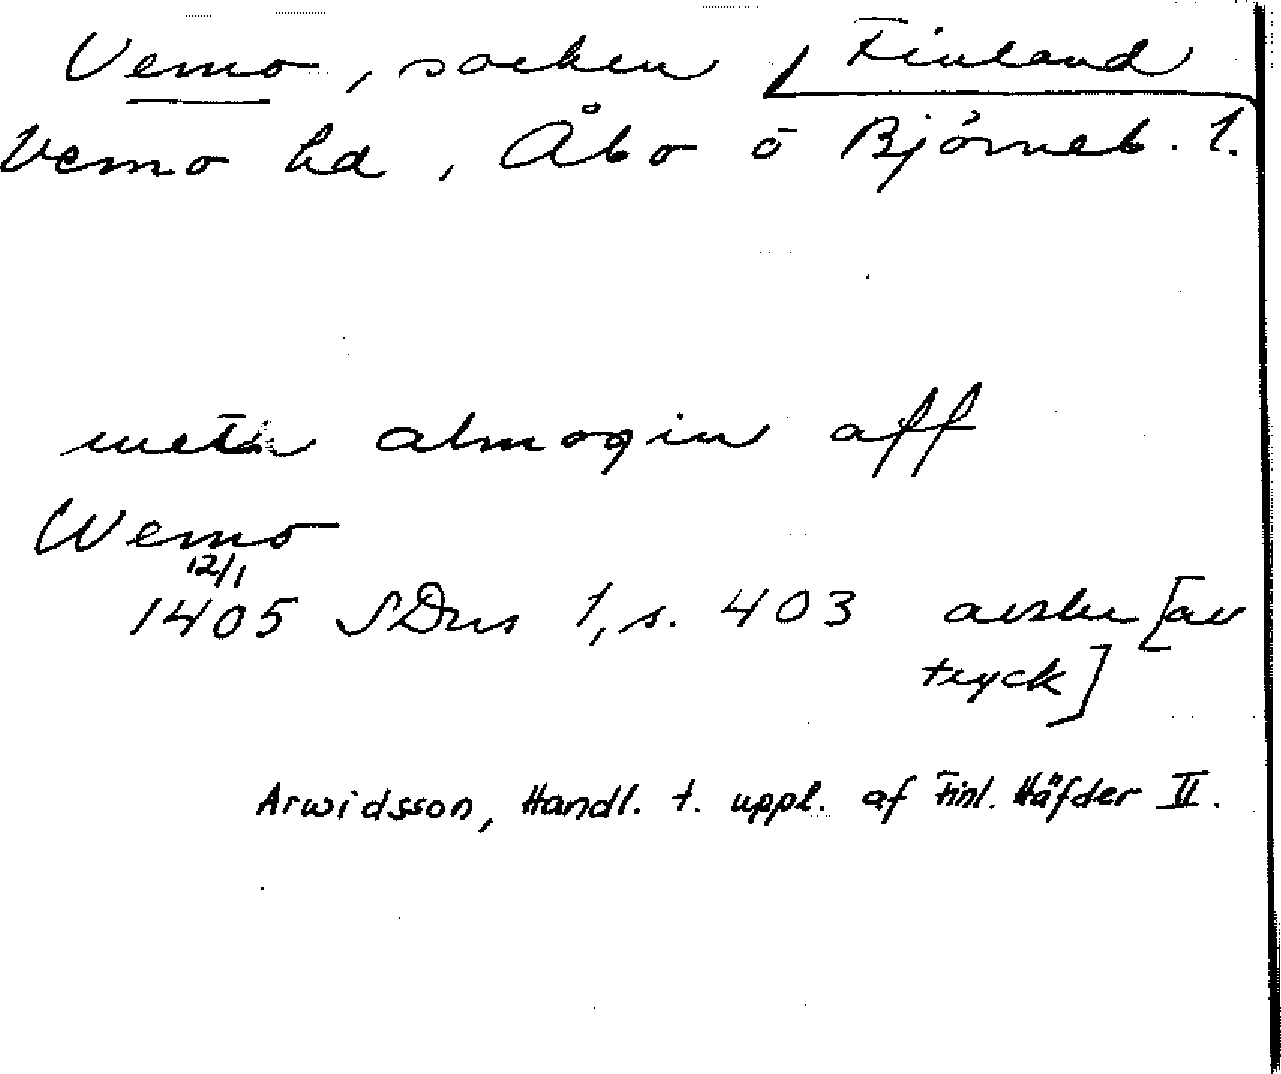 Vemo, socken Finland
Vemo hd, Åbo o Björneb. l.
meth almogin aff
Wemo
12/1
1405 SDns 1, s. 403 avskr [av
tryck]
Arwidsson, Handl. t. uppl. af Finl. Häfder II.